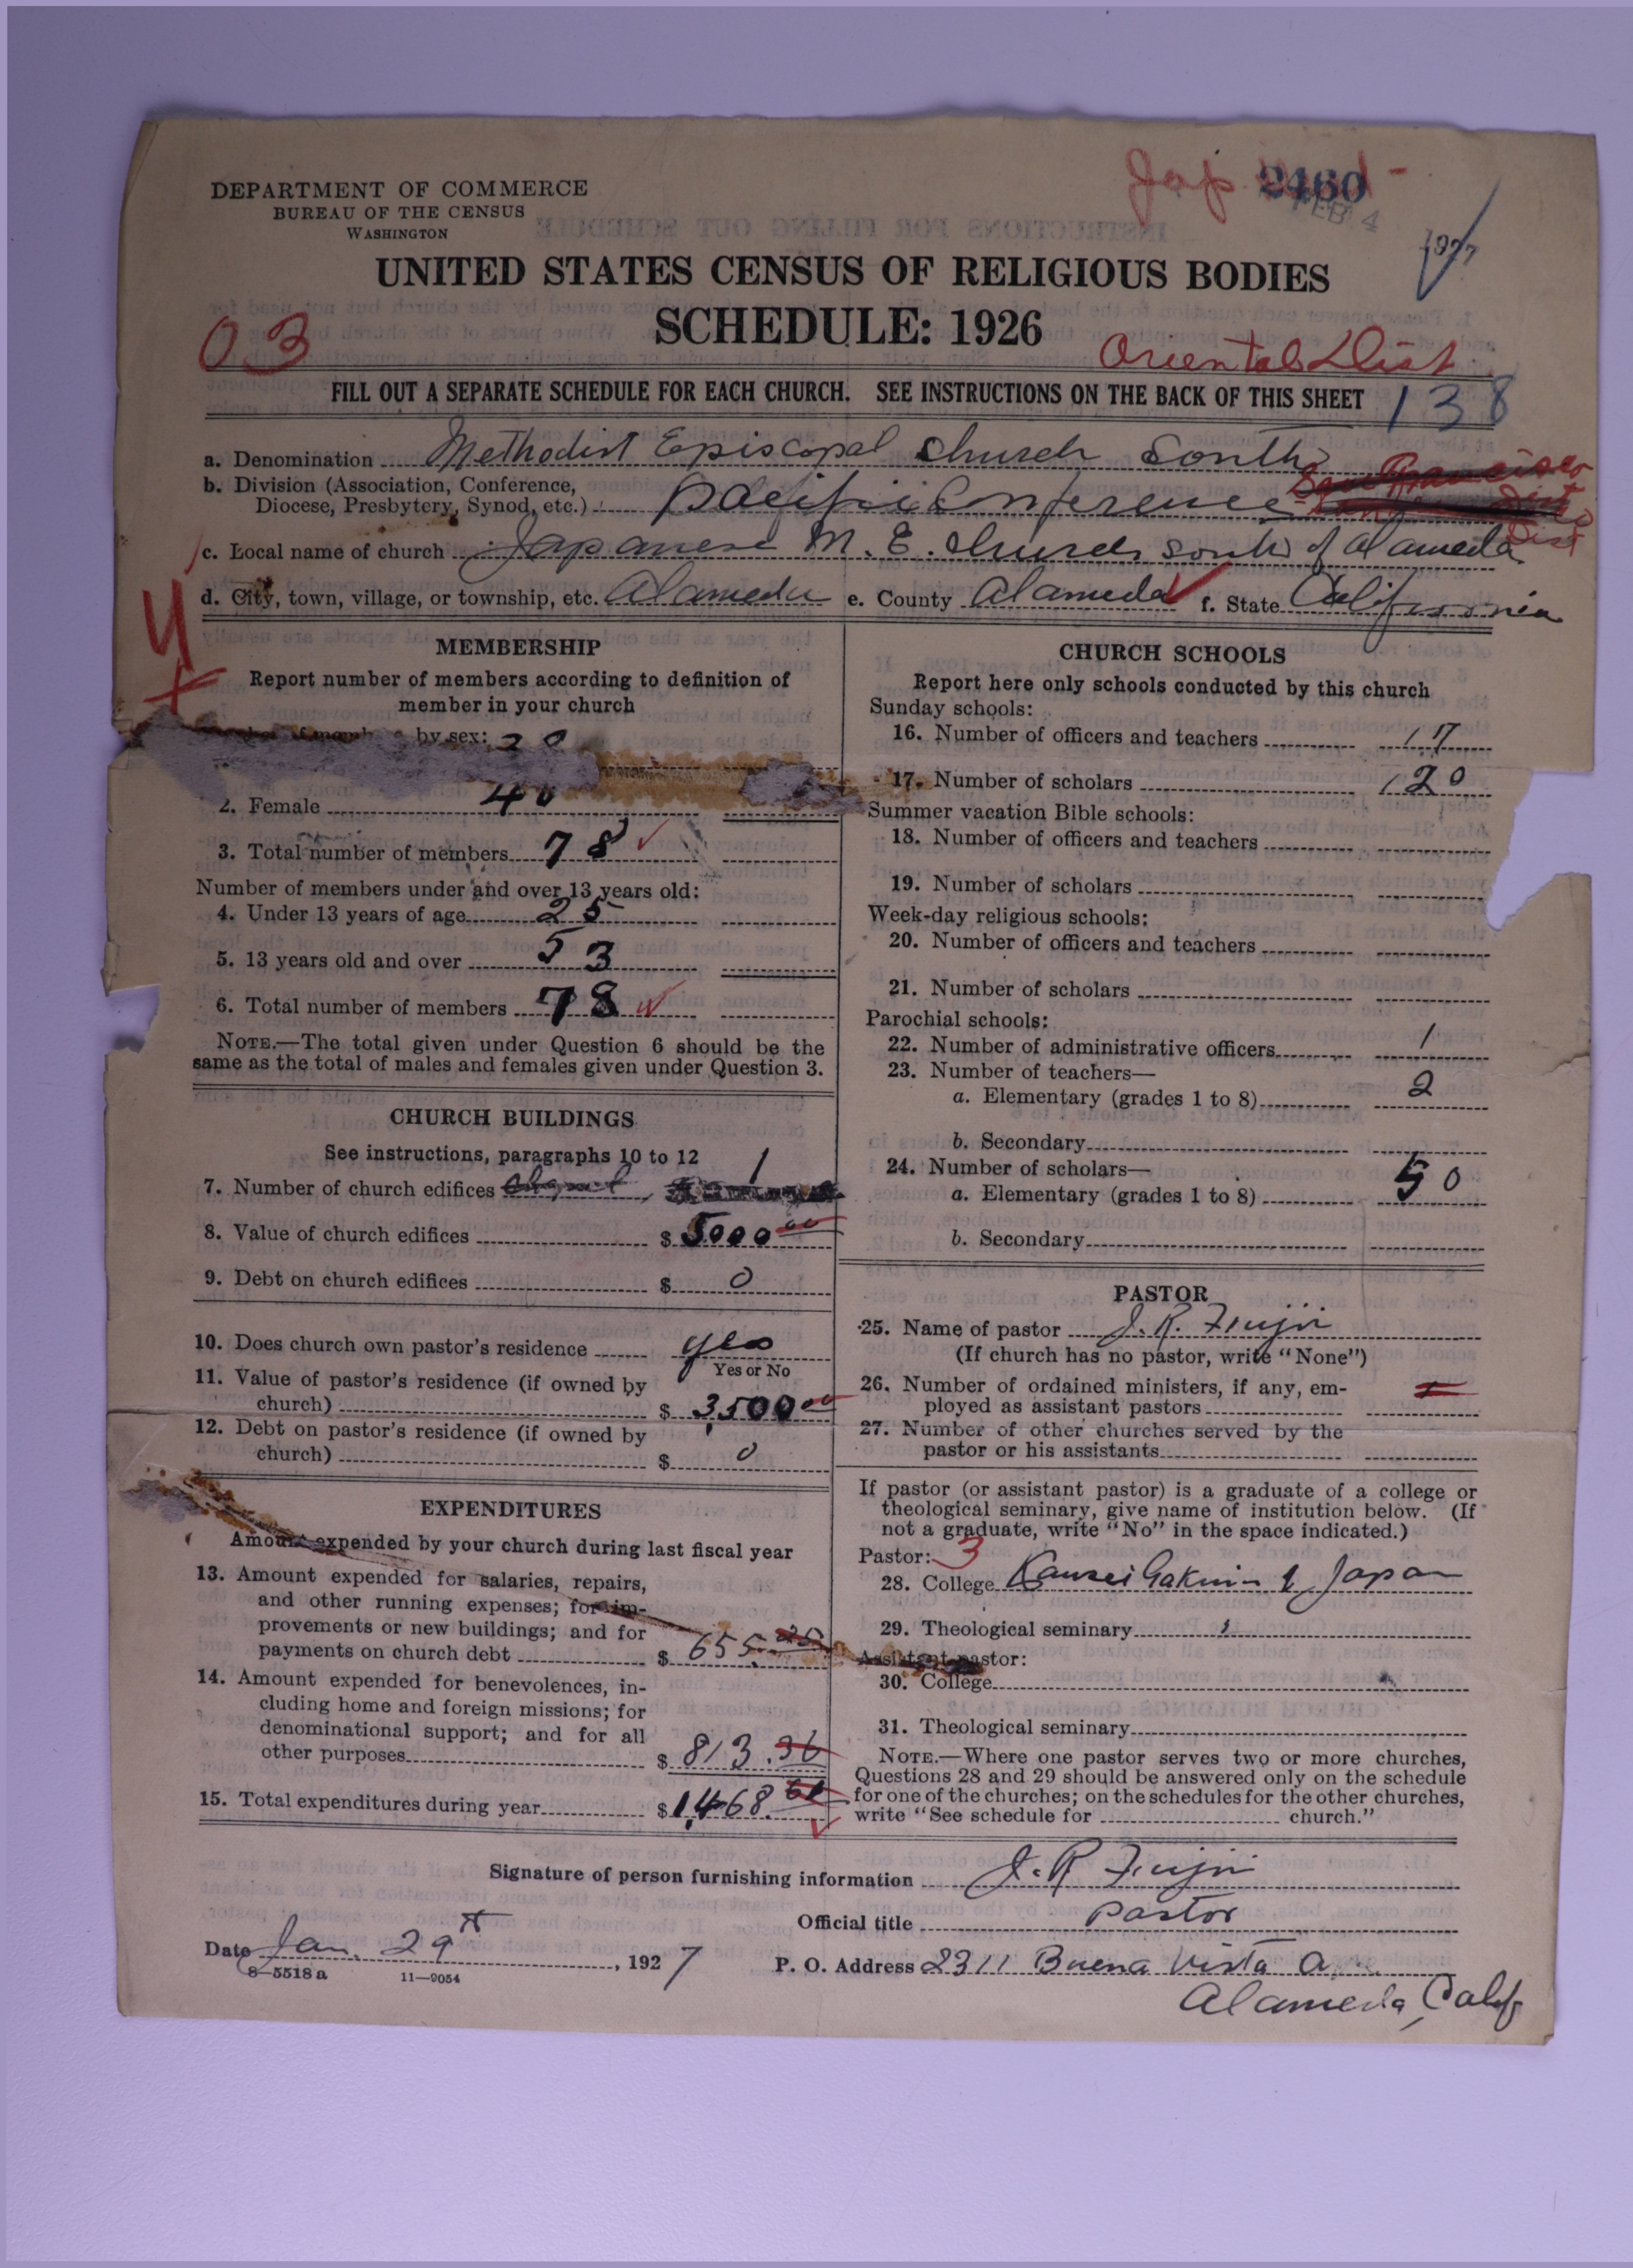 DEPARTMENT OF COMMERCE
BUREAU OF THE CENSUS
WASHINGTON
Jap
2460
FEB 4
1927
UNITED STATES CENSUS OF RELIGIOUS BODIES
SCHEDULE: 1926
03
Oriental Dist.
FILL OUT A SEPARATE SCHEDULE FOR EACH CHURCH. SEE INSTRUCTIONS ON THE BACK OF THIS SHEET
138
a. Denomination Methodist Episcopal Church South
b. Division (Association, Conference,
Diocese, Presbytery, Synod, etc.) Pacific Conference
San Francisco
Dist
c. Local name of church Japanese M. E. Church South of Alameda
d. City, town, village, or township, etc. Alameda e. County Alameda f. State California
MEMBERSHIP
Report number of members according to definition of
member in your church
by sex:
2. Female 40
3. Total number of members 78
Number of members under and over 13 years old:
4. Under 13 years of age 25
5. 13 years old and over 53
6. Total number of members 78
NOTE.—The total given under Question 6 should be the
same as the total of males and females given under Question 3.
CHURCH BUILDINGS
See instructions, paragraphs 10 to 12
7. Number of church edifices 1
8. Value of church edifices $ 5000 00
9. Debt on church edifices $ 0
10. Does church own pastor's residence yes
Yes or No
11. Value of pastor's residence (if owned by
church) $ 3,500 00
12. Debt on pastor's residence (if owned by
church) $ 0
EXPENDITURES
Amount expended by your church during last fiscal year
13. Amount expended for salaries, repairs,
and other running expenses; for im-
provements or new buildings; and for
payments on church debt $ 655.25
14. Amount expended for benevolences, in-
cluding home and foreign missions; for
denominational support; and for all
other purposes $ 813.36
15. Total expenditures during year $ 1,468.61
CHURCH SCHOOLS
Report here only schools conducted by this church
Sunday schools:
16. Number of officers and teachers 17
17. Number of scholars 120
Summer vacation Bible schools:
18. Number of officers and teachers
19. Number of scholars
Week-day religious schools:
20. Number of officers and teachers
21. Number of scholars
Parochial schools:
22. Number of administrative officers 1
23. Number of teachers—
a. Elementary (grades 1 to 8) 2
b. Secondary
24. Number of scholars—
a. Elementary (grades 1 to 8) 50
b. Secondary
PASTOR
25. Name of pastor J. R. Fujii
(If church has no pastor, write "None")
26. Number of ordained ministers, if any, em-
ployed as assistant pastors
27. Number of other churches served by the
pastor or his assistants
If pastor (or assistant pastor) is a graduate of a college or
theological seminary, give name of institution below. (If
not a graduate, write "No" in the space indicated.)
Pastor: 3
28. College Kansei Gakuin of Japan
29. Theological seminary
Assistant pastor:
30. College
31. Theological seminary
NOTE.—Where one pastor serves two or more churches,
Questions 28 and 29 should be answered only on the schedule
for one of the churches; on the schedules for the other churches,
write "See schedule for church."
Signature of person furnishing information J. R. Fujii
Official title Pastor
Date Jan. 29th, 1927
P. O. Address 2311 Buena Vista A.
Alameda, Calif
8—5518 a 11—9054